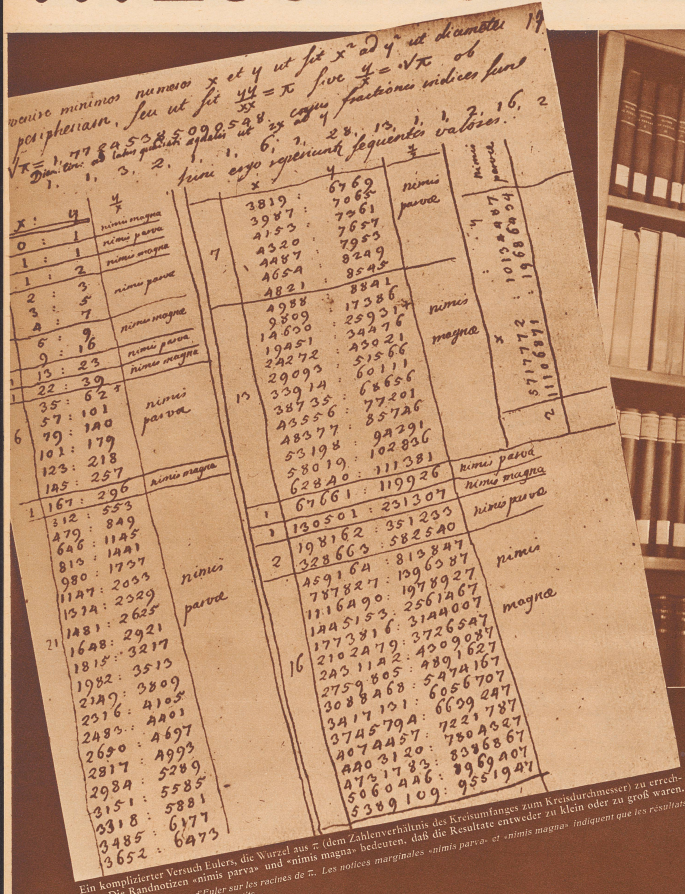 minimos numeros x et y ut sit x² ad y² ut diameter 19
peripheriam, seu ut sit yy/xx = π sive y/x = √π ob
√π = 1,7724538509 0548 cujus fractiones indices sunt
1, 1, 3, 2, 1, 1, 6, 1, 28, 13, 1, 1, 2, 16, 2
hinc ergo reperiuntur sequentes valores.
x : y y/x
0 : 1 nimis magna
1 : 1 nimis parva
1 : 2 nimis magna
2 : 3
3 : 5 nimis parva
4 : 7
5 : 9 nimis magna
9 : 16 nimis parva
1 13 : 23 nimis magna
1 22 : 39
35 : 62
57 : 101 nimis
6 79 : 140 parva
101 : 179
123 : 218
145 : 257
1 167 : 296 nimis magna
312 : 553
479 : 849
646 : 1145
813 : 1441
980 : 1737 nimis
1147 : 2033
1314 : 2329 parva
1481 : 2625
21 1648 : 2921
1815 : 3217
1982 : 3513
2149 : 3809
2316 : 4105
2483 : 4401
2650 : 4697
2817 : 4993
2984 : 5289
3151 : 5585
3318 : 5881
3485 : 6177
3652 : 6473
x y y/x
3819 : 6769 nimis
3987 : 7065 parva
4153 : 7361
4320 : 7657
7 4487 : 7953
4654 : 8249
4821 : 8545
4988 : 8841
9809 : 17386 nimis
14630 : 25931
19451 : 34476 magna
24272 : 43021
29093 : 51566
33914 : 60111
13 38735 : 68656
43556 : 77201
48377 : 85746
53198 : 94291
58019 : 102836
62840 : 111381
1 67661 : 119926 nimis parva
1 130501 : 231307 nimis magna
198162 : 351233 nimis parva
2 328663 : 582540
459164 : 813847
787827 : 1396387 nimis
1116490 : 1978927
1445153 : 2561467 magna
1773816 : 3144007
16 2102479 : 3726547
2431142 : 4309087
2759805 : 4891627
3088468 : 5474167
3417131 : 6056707
3745794 : 6639247
4074457 : 7221787
4403120 : 7804327
4731783 : 8386867
5060446 : 8969407
5389109 : 9551947
nimis
parva
y
x
2
Ein komplizierter Versuch Eulers, die Wurzel aus π (dem Zahlenverhältnis des Kreisumfanges zum Kreisdurchmesser) zu errech-
Die Randnotizen «nimis parva» und «nimis magna» bedeuten, daß die Resultate entweder zu klein oder zu groß waren.
d'Euler sur les racines de π. Les notices marginales «nimis parva» et «nimis magna» indiquent que les résultats